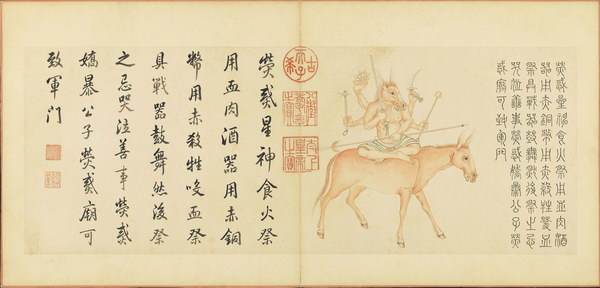 熒惑星神食火祭用血肉酒
器用赤銅幣用赤殺牲唼血
祭具戰器鼓舞然後祭之忌
哭泣善事熒惑嬌暴公子熒
惑廟可致軍門
古希天子
八徵耄念之寶
太上皇帝之寶
熒惑星神食火祭
用血肉酒器用赤銅
幣用赤殺牲唼血祭
具戰器鼓舞然後祭
之忌哭泣善事熒惑
嬌暴公子熒惑廟可
致軍門